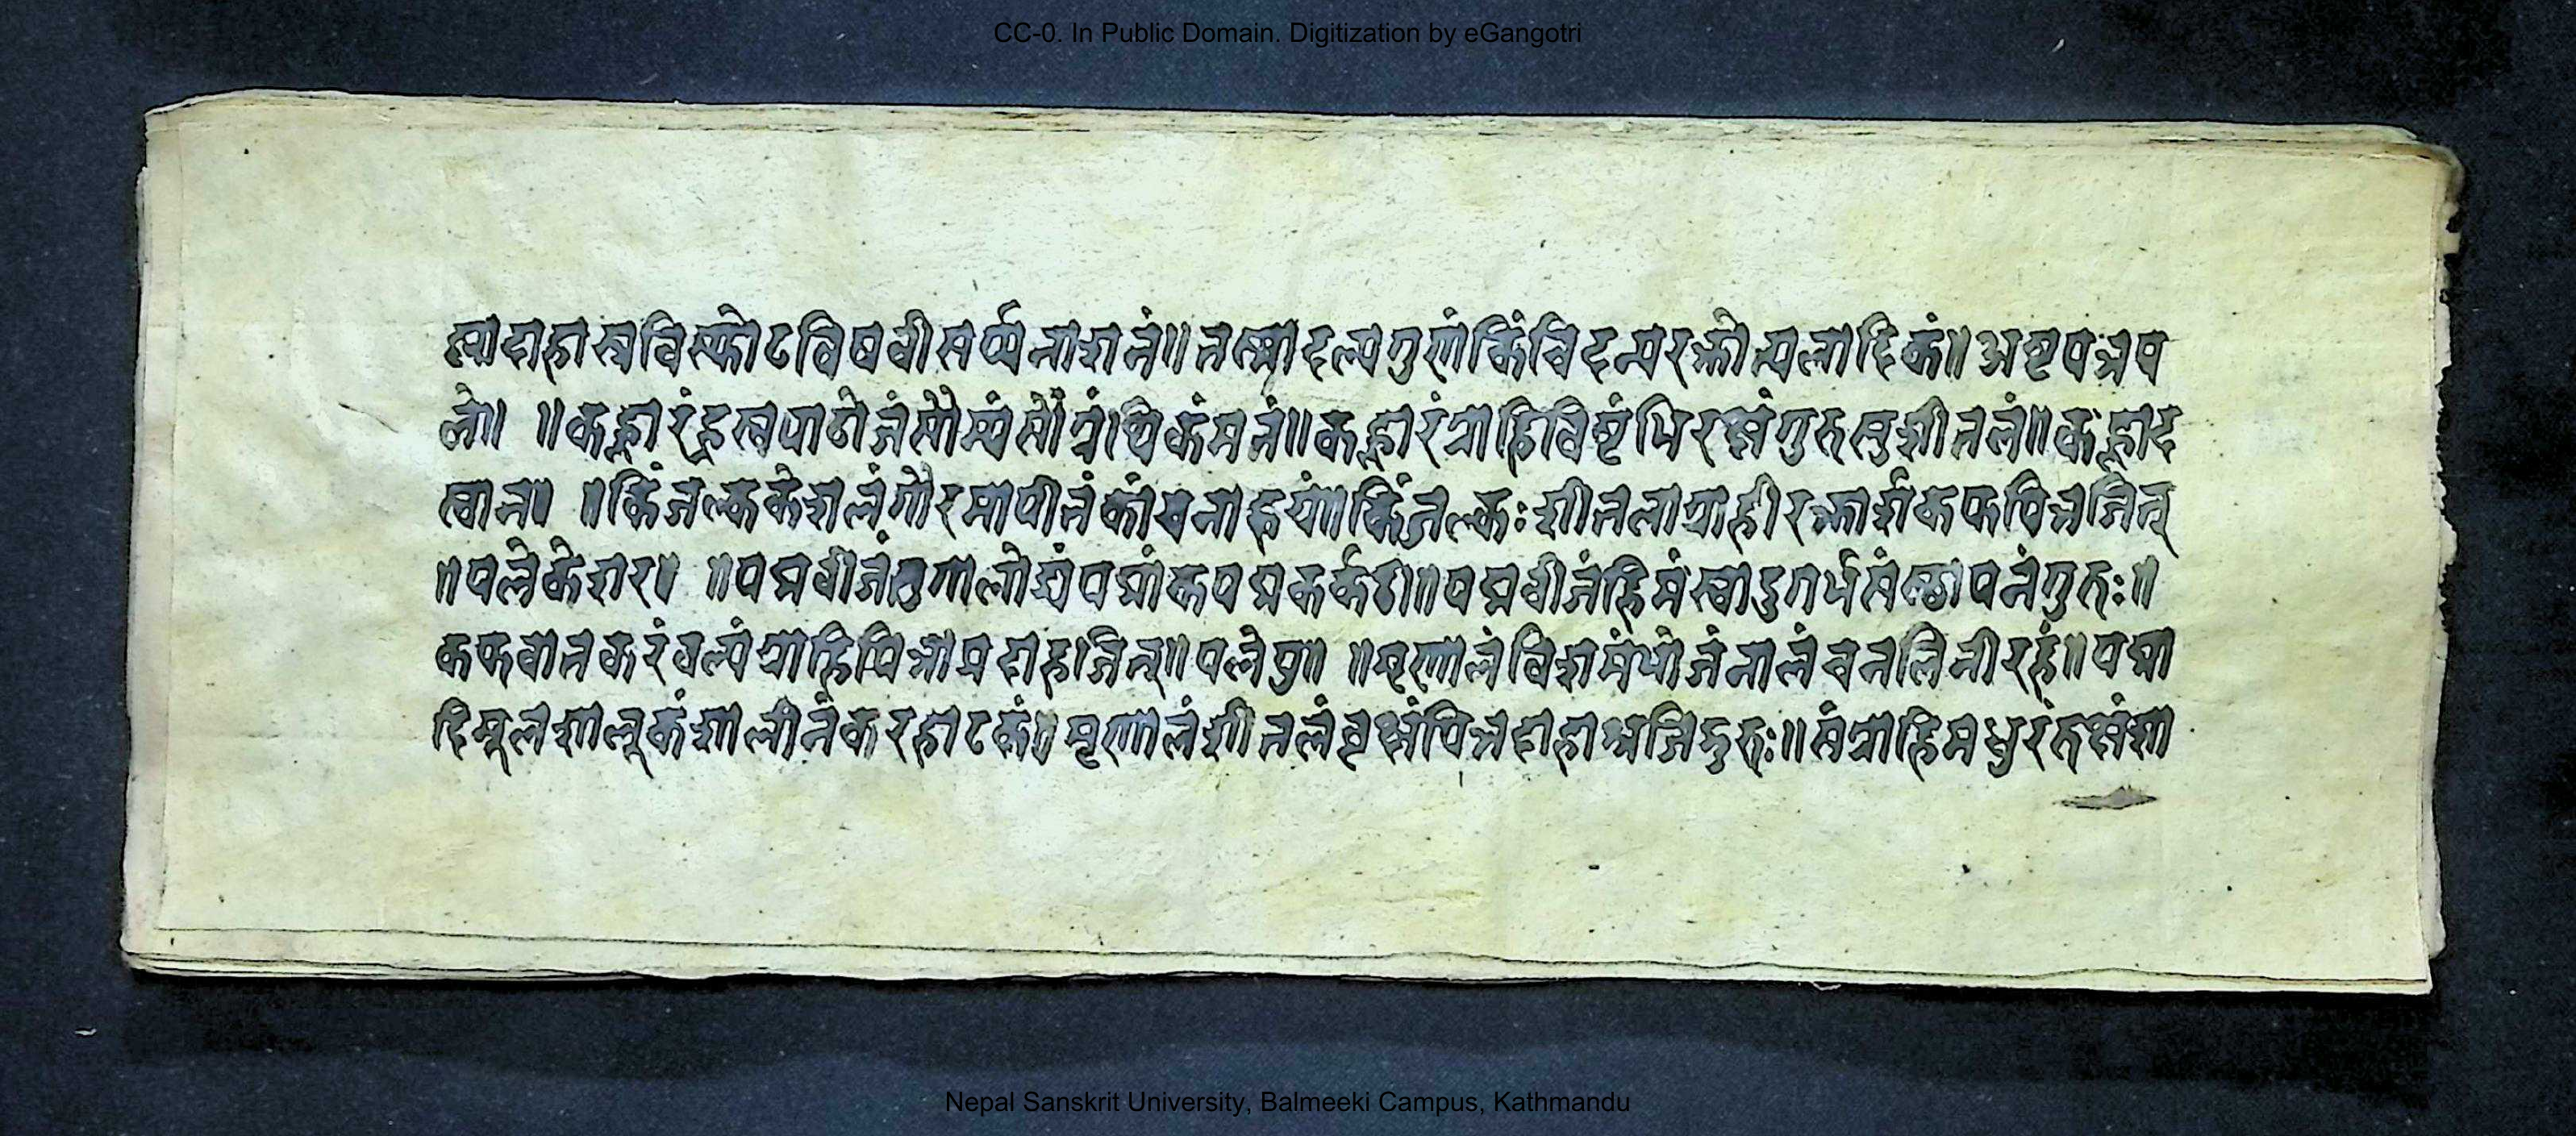 CC-0. In Public Domain. Digitization by eGangotri
ष्णादाहास्रविस्फोटविषवीसर्प्पनाशनं॥ तस्मादल्पगुणं किंचिदन्यरक्तोत्पलादिकं॥ अष्टपत्रप
ले॥ ॥ कह्लारं ह्रस्वपाथोजं सौम्यं सौगन्धिकं मतं॥ कह्लारं ग्राहि विष्टंभि रक्षं गुरु सुशीतलं॥ कह्लार
स्वान॥ ॥ किंजल्क केशलं गौरमापीतं कांचनाह्वयं॥ किंजल्कः शीतलो ग्राही रक्तार्शकफपित्तजित्
॥ पलेकेशर॥ ॥ पद्मबीजं तु गालोड्यं पद्माक्ष पद्मकर्कटी॥ पद्मबीजं हिमं स्वादु गर्भसंस्थापनं गुरुः॥
कफवातकरं बल्यं ग्राहि पित्तास्रदाहजित्॥ पलेपु॥ ॥ मृणालं विशमंभोजं नालं च नलिनीरुहं॥ पद्मा
दिमूल शालूकं शालीनं करहाटकं॥ मृणालं शीतलं वृष्यं पित्तदाहास्रजिद्गुरुः॥ संग्राहि मधुरं रुक्षं शा
Nepal Sanskrit University, Balmeeki Campus, Kathmandu